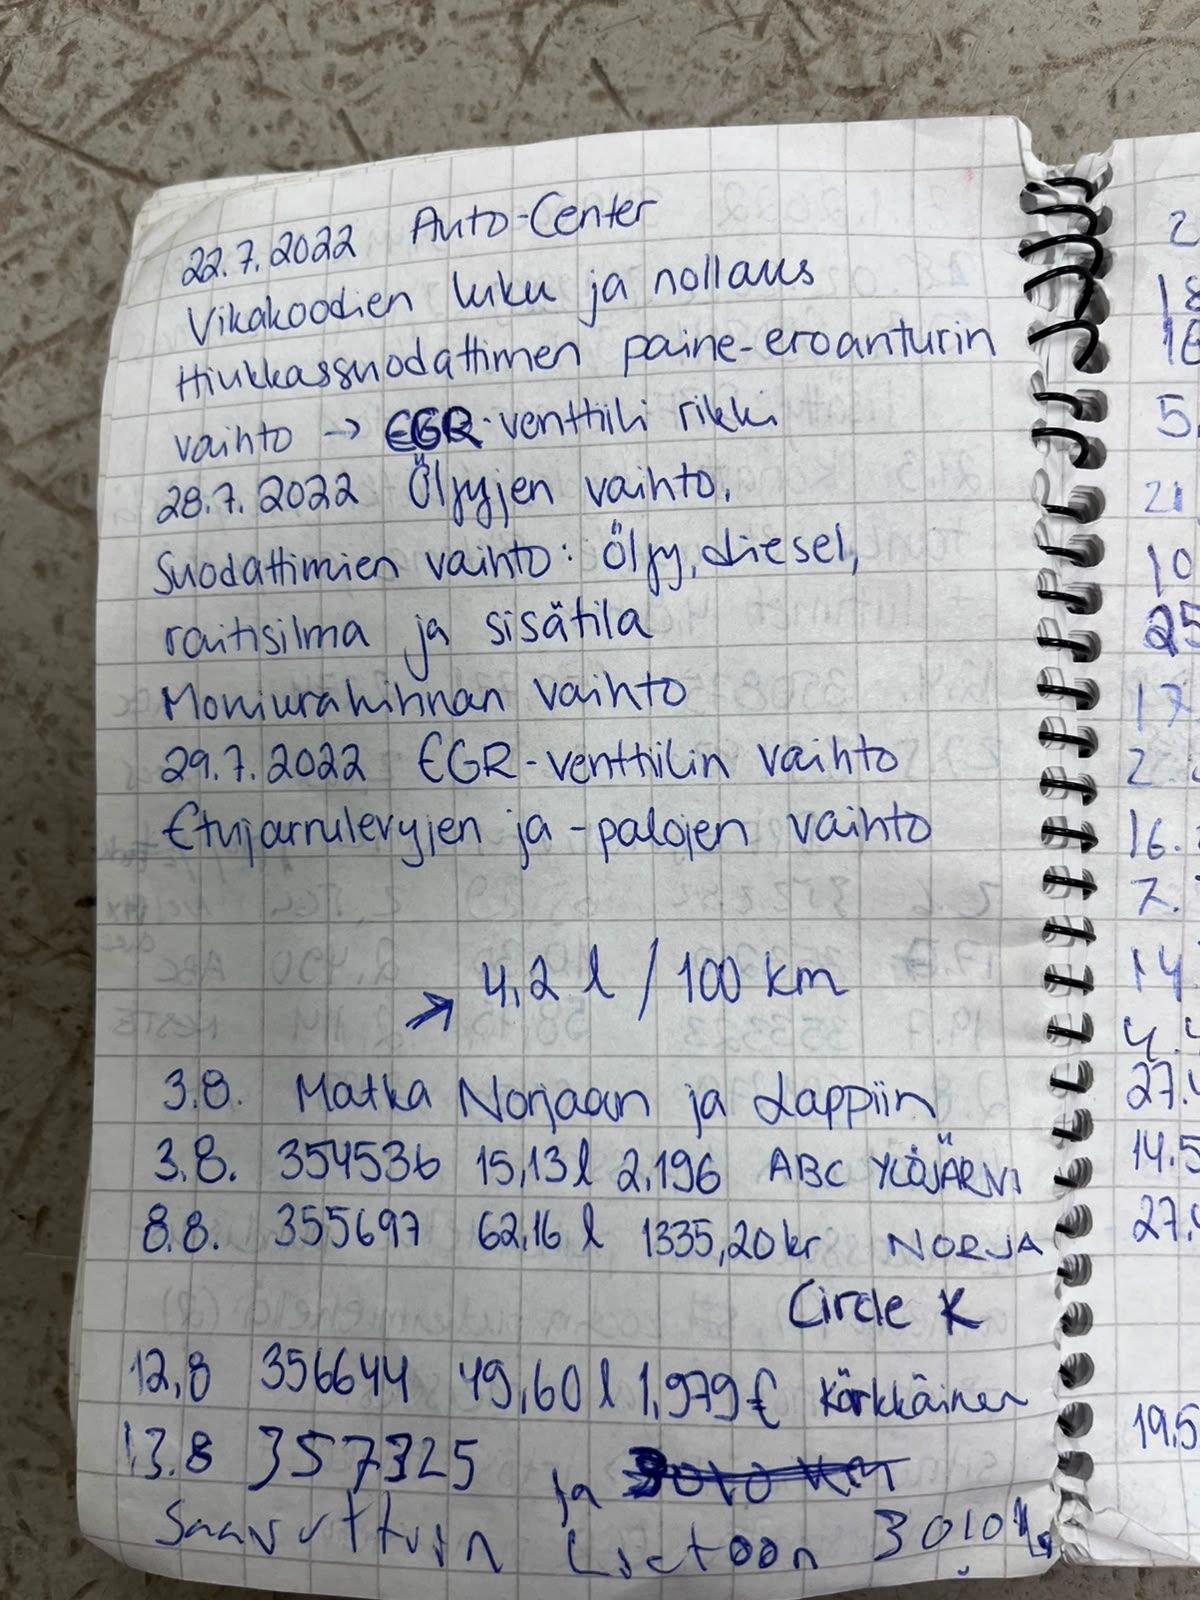 22.7.2022 Auto-Center
Vikakoodien luku ja nollaus
Hiukkassuodattimen paine-eroanturin
vaihto → EGR-venttiili rikki
28.7.2022 Öljyjen vaihto,
Suodattimien vaihto: Öljy, diesel,
raitisilma ja sisätila
Moniurahihnan vaihto
29.7.2022 EGR-venttiilin vaihto
Etujarrulevyjen ja -palojen vaihto
→ 4,2 l / 100 km
3.8. Matka Norjaan ja Lappiin
3.8. 354536 15,13 l 2,196 ABC YLÖJÄRVI
8.8. 355697 62,16 l 1335,20 kr NORJA
Circle K
12,8 356644 49,60 l 1,979 € Kärkkäinen
13.8 357325
ja
Saavuttiin 3010
2
18
16
5,
21
10
25
17
2.
16.
7.
14.
4.4
27.
14.5
27.
19.5